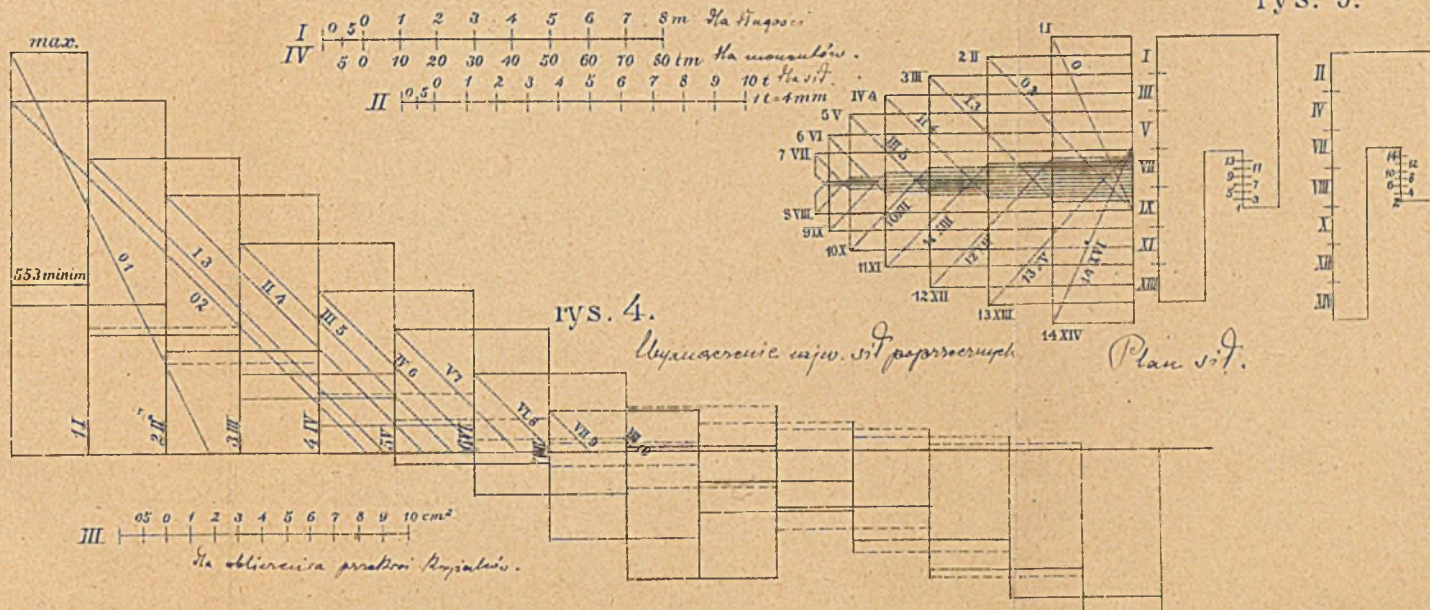 rys. 5.
max.
I 0 5 0 1 2 3 4 5 6 7 8 m dla długości
IV 5 0 10 20 30 40 50 60 70 80 tm dla momentów.
II 0 5 0 1 2 3 4 5 6 7 8 9 10 t dla sił.
1 t = 4 mm
553 minim
01
02
I.3
II.4
III 5
IV 6
V 7
VI.8
VII 9
1 I
2 II
3 III
4 IV
5 V
6 VI
rys. 4.
Wyznaczenie najw. sił poprzecznych
III 05 0 1 2 3 4 5 6 7 8 9 10 cm²
dla obliczenia
1 I
2 II
3 III
IV 4
5 V
6 VI
7 VII
8 VIII
9 IX
10 X
11 XI
12 XII
13 XIII
14 XIV
I.3
II 4
III.5
10 XII
14 XVI
I
III
V
VII
IX
XI
XIII
13
11
9
7
5
3
1
II
IV
VII
VIII
X
XII
XIV
14
12
10
8
6
4
2
Plan sił.